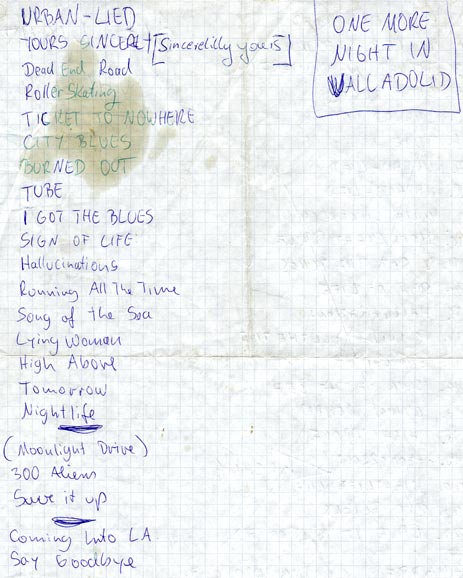 URBAN-LIED
YOURS SINCERELY [Sincerdilly yours]
Dead End Road
Roller Skating
TICKET TO NOWHERE
CITY BLUES
BURNED OUT
TUBE
I GOT THE BLUES
SIGN OF LIFE
Hallucinations
Running All The Time
Song of the Sea
Lying Woman
High Above
Tomorrow
Nightlife
(Moonlight Drive)
300 Aliens
Save it up
Coming Into LA
Say Goodbye
ONE MORE
NIGHT IN
VALLADOLID